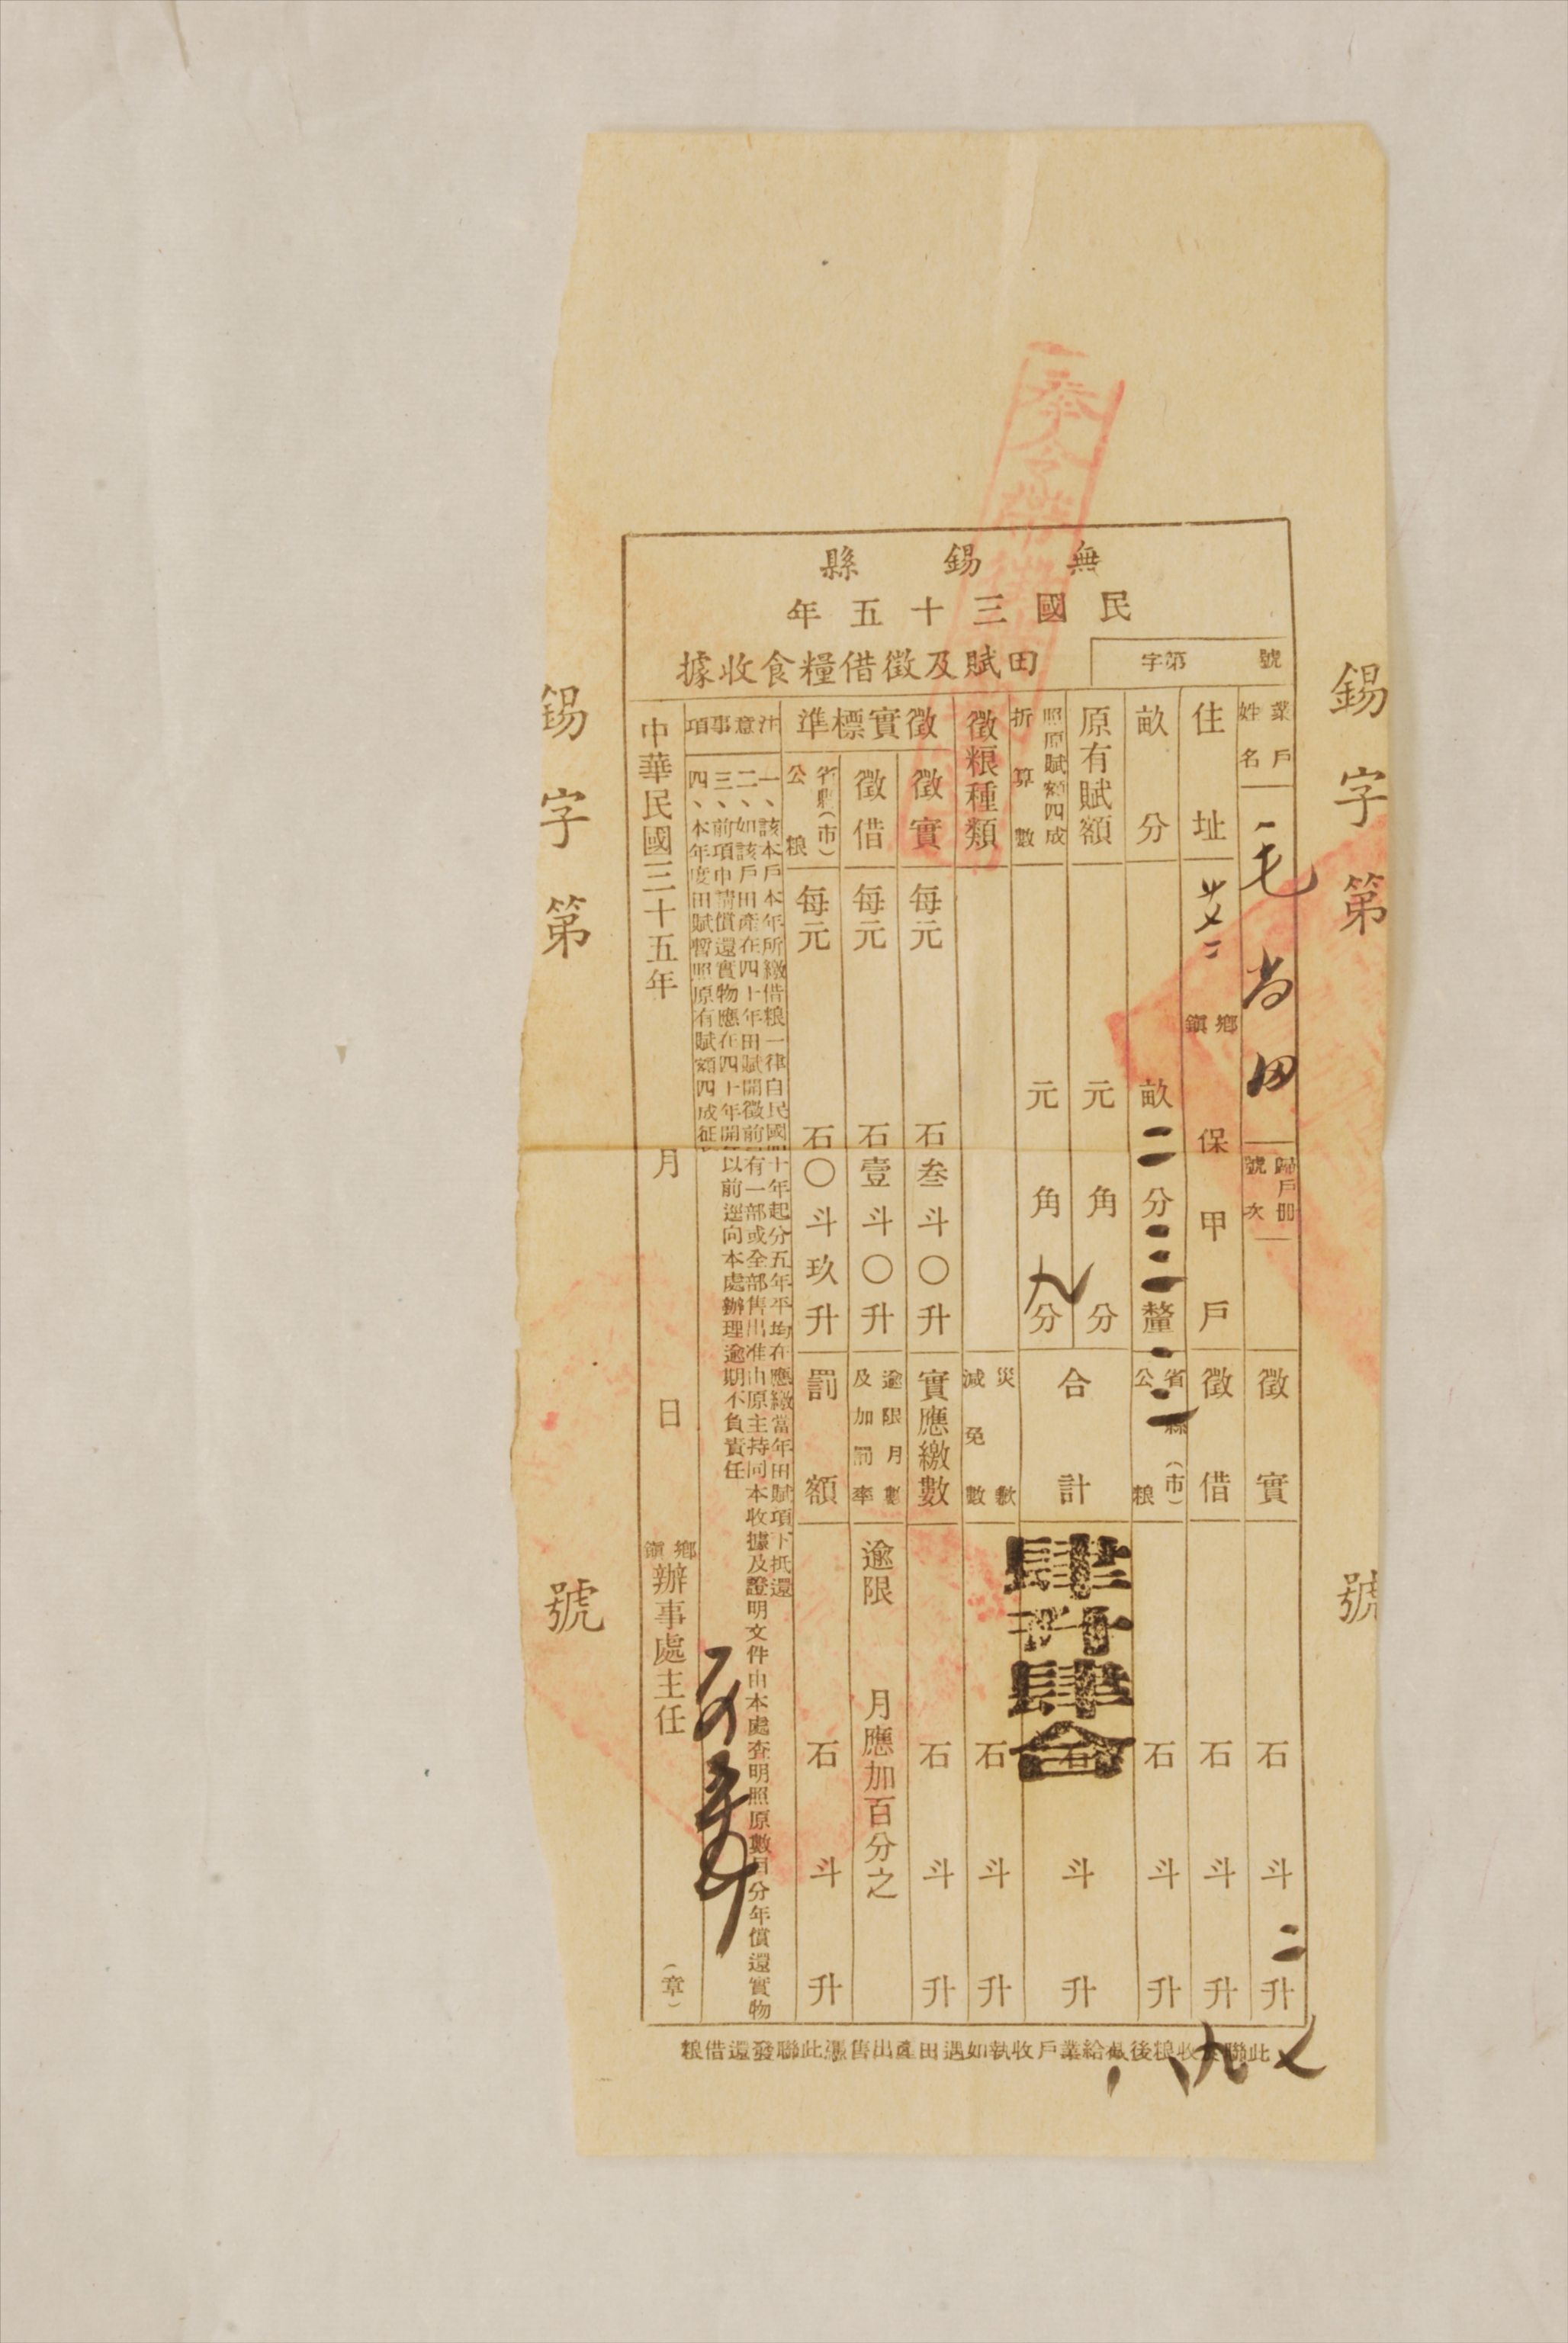 無錫縣
民國三十五年
田賦及徵借糧食收據
字第 號
錫字第 號
業戶姓名 毛 田
歸戶冊號次
徵實 石 斗 二升
住址 鄉鎮 保 甲 戶
徵借 石 斗 升
畝分 畝二分三釐
省縣(市)公粮 石 斗 升
原有賦額 元 角 分
照原賦額四成折算數 元 角九分
合計 石 斗 升
肆升肆合
徵粮種類
災歉減免數 石 斗 升
徵實標準
徵實 每元 石叁斗〇升
實應繳數 石 斗 升
徵借 每元 石壹斗〇升
逾限月數及加罰率 逾限 月應加百分之
省縣(市)公粮 每元 石〇斗玖升
罰額 石 斗 升
注意事項
一、該本戶本年所繳借粮一律自民國四十年起分五年平均在應繳當年田賦項下抵還
二、如該戶田產在四十年田賦開徵前有一部或全部售出准由原主持向本收據及證明文件由本處查明照原數目分年償還實物
三、前項申請償還實物應在四十年開以前逕向本處辦理逾期不負責任
四、本年度田賦暫照原有賦額四成征
中華民國三十五年 月 日
鄉鎮辦事處主任 (章)
此聯收粮後截給業戶收執如遇田產出售憑此聯發還借粮
錫字第 號
奉令